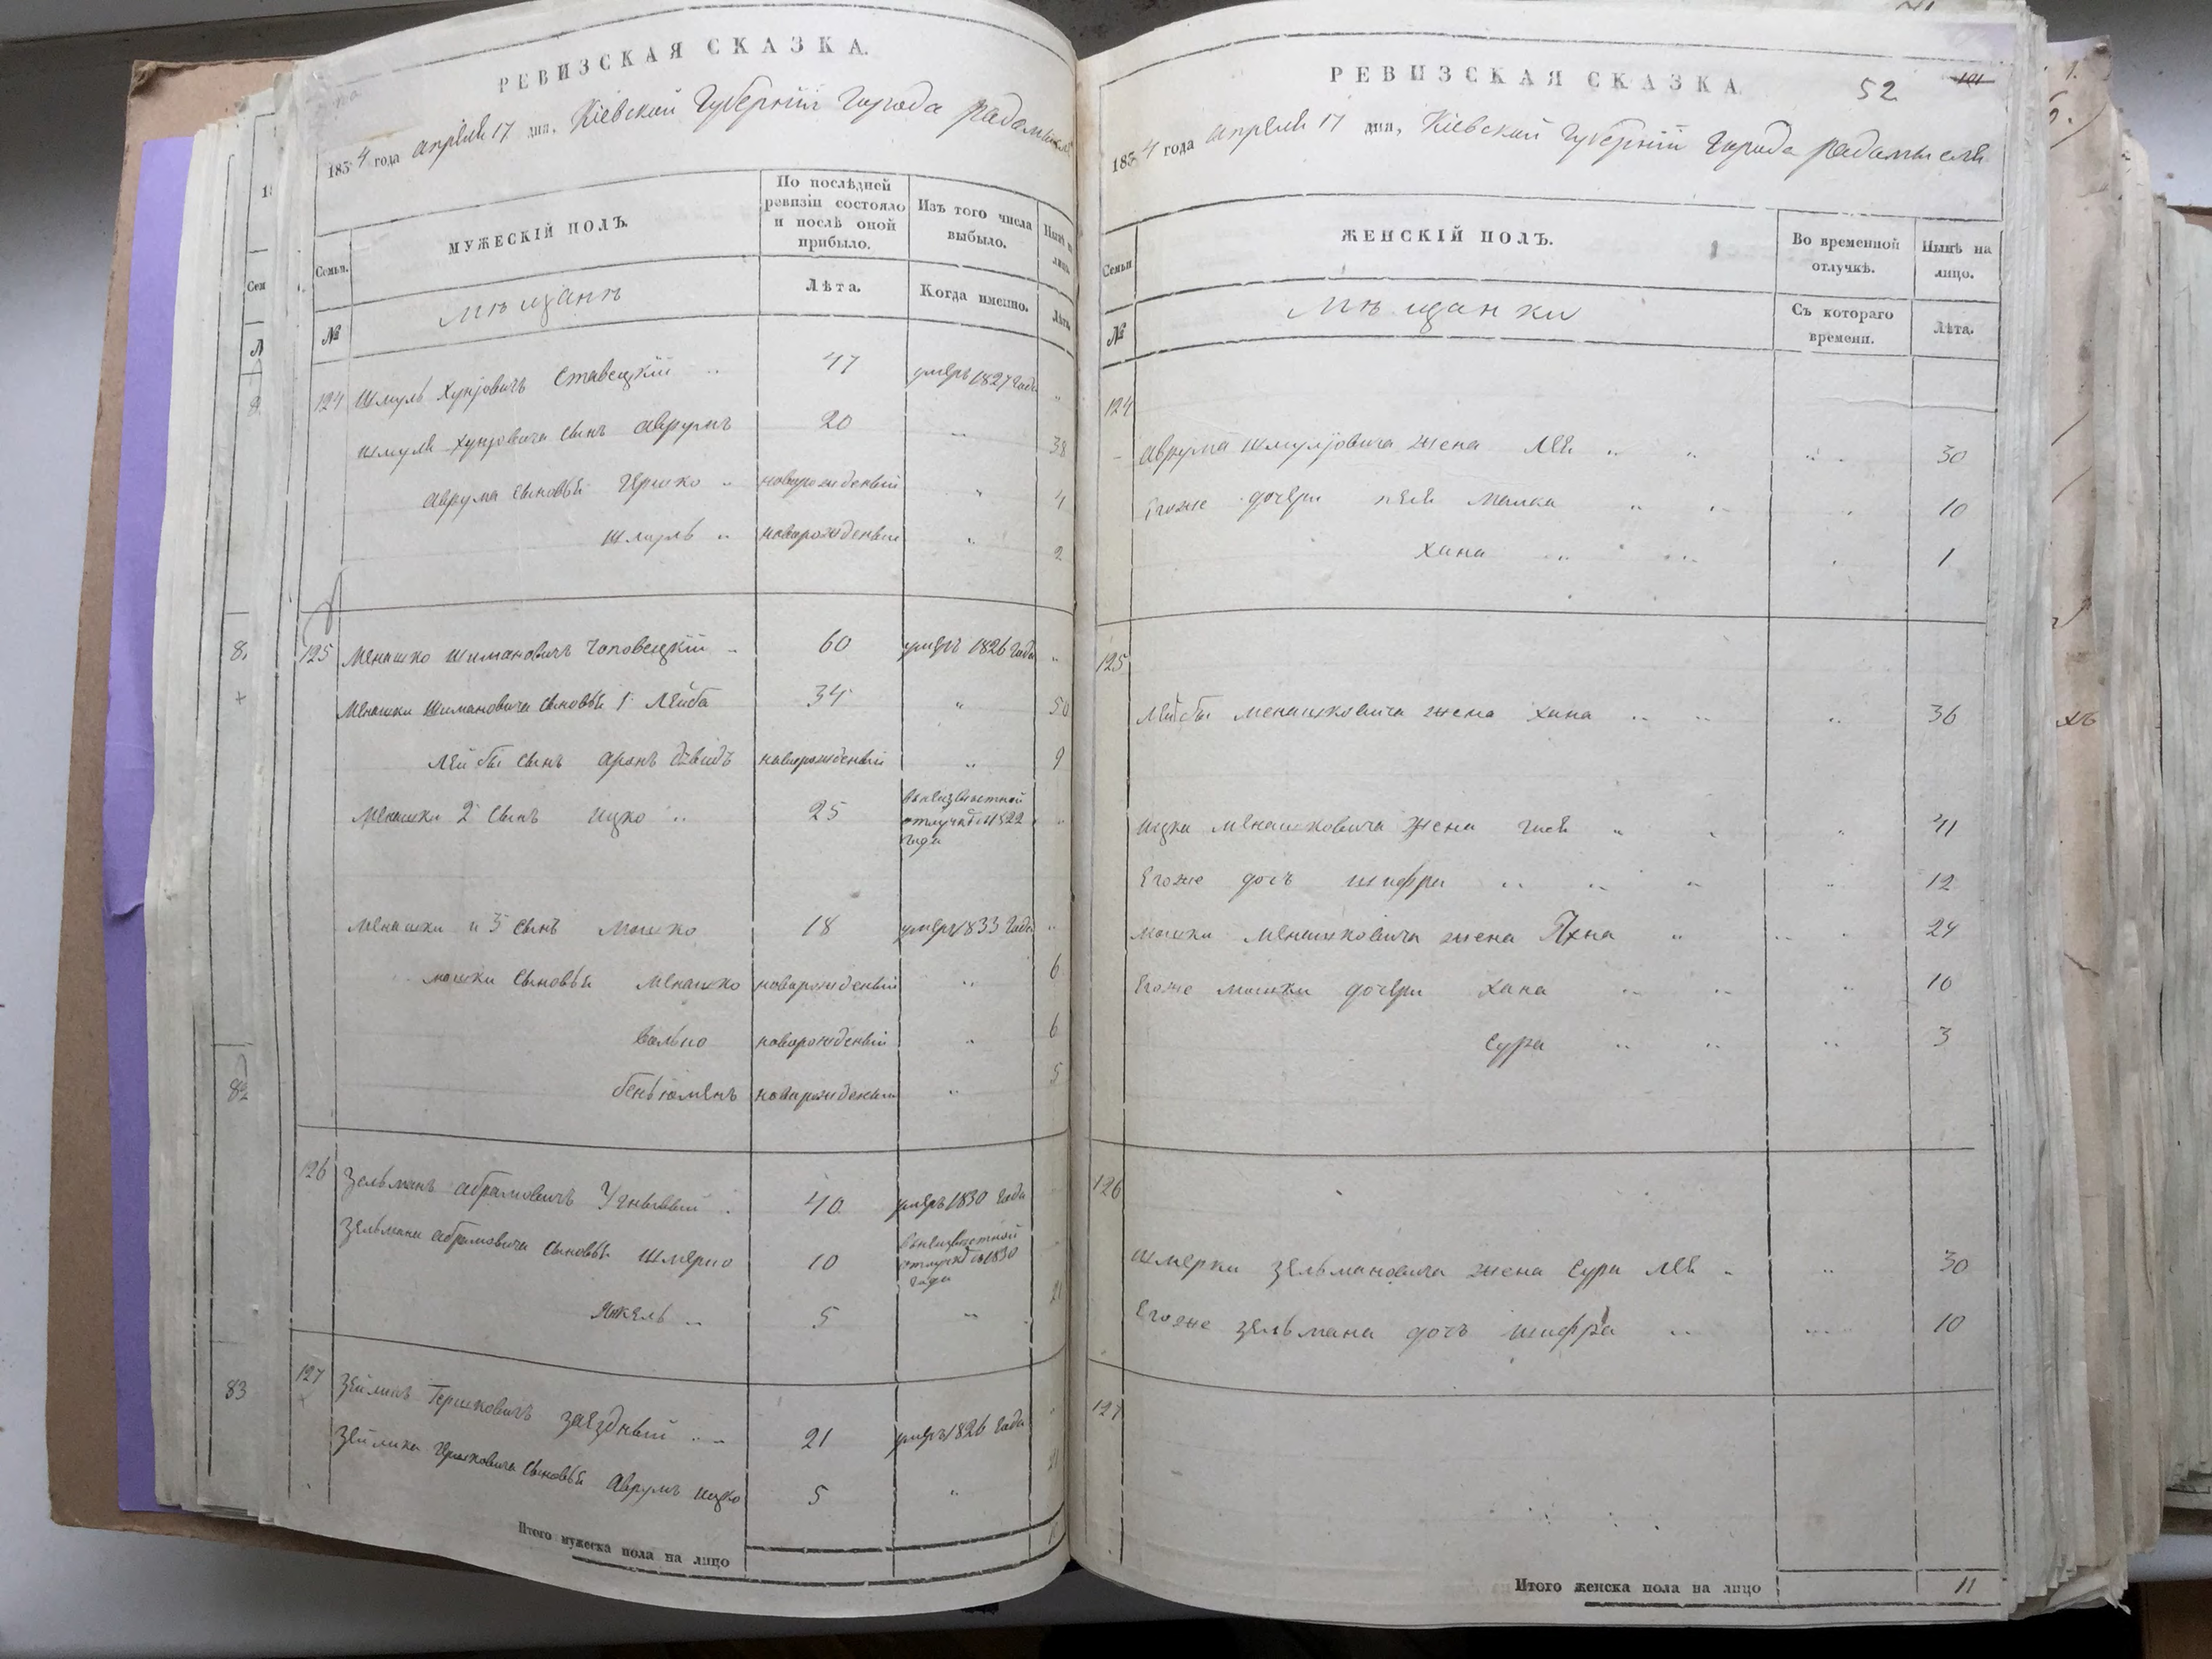 РЕВИЗСКАЯ СКАЗКА.
1834 года апреля 17 дня, Кіевской Губерніи города радомысля
Семьи.
МУЖЕСКІЙ ПОЛЪ.
По послѣдней ревизіи состояло и послѣ оной прибыло.
Изъ того числа выбыло.
Нынѣ на лицо.
№
мѣщанъ
Лѣта.
Когда именно.
Лѣта.
124 Шмуль Хунзовичъ Ставецкій 47 умеръ 1827 года
Шмуля Хунзовича сынъ аврумъ 20 38
аврума сыновья Гершко новорожденый 4
Шмуль новорожденый 2
125 Менашко Шимановичъ Чоповецкій 60 умеръ 1826 года
Менашки Шимановича сыновья 1 Лейба 34 50
Лейбы сынъ аронъ давидъ новорожденый 9
Менашки 2 сынъ ицко 25 в неизвестной отлучке с 1822 года
Менашки 3 сынъ Мошко 18 умеръ 1833 года
мошки сыновья Менашко новорожденый 6
Волько новорожденый 6
беньюменъ новорожденый 5
126 Зельманъ абрамовичъ 40 умеръ 1830 года
Зельмана абрамовича сыновья Шмерко 10 в неизвестной отлучке с 1830 года
Янкель 5 21
127 Зейликъ Гершковичъ заездный 21 умеръ 1826 года
Зейлика Гершковича сыновья Аврумъ ицко 5 21
Итого мужеска пола на лицо
РЕВИЗСКАЯ СКАЗКА
52
101
1834 года апреля 17 дня, Кіевской Губерніи Города радомысля
Семьи
ЖЕНСКІЙ ПОЛЪ.
Во временной отлучкѣ.
Нынѣ на лицо.
№
мѣщанки
Съ котораго времени.
Лѣта.
124
аврума шмулёвича жена Лея 30
Егоже дочери Малка 10
хана 1
125
Лейбы менашковича жена хана 36
ицки менашковича жена 41
Егоже дочь шифра 12
мошки менашковича жена 24
Егоже мошки дочери хана 10
сура 3
126
шмерки зельмановича жена сура лея 30
Егоже зельмана дочь шифра 10
127
Итого женска пола на лицо 11
83